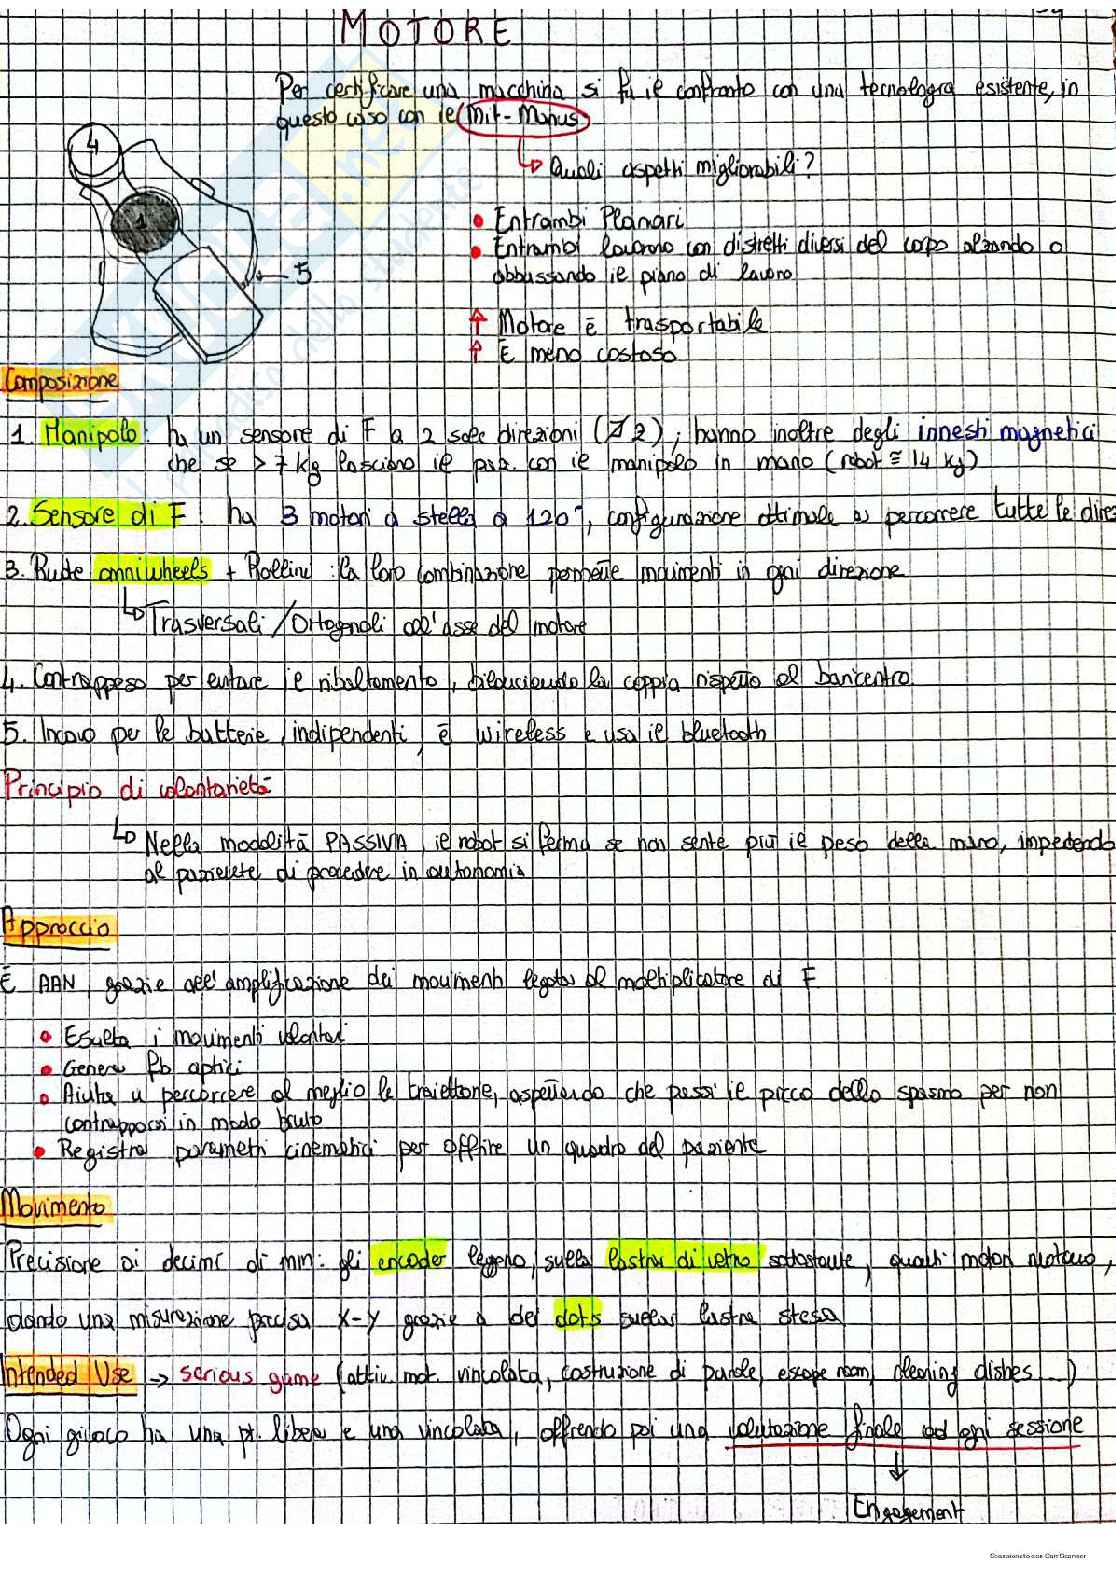 MOTORE
Per certificare una macchina si fa il confronto con una tecnologia esistente, in
questo caso con il Mit-Manus
4
↳ Quali aspetti migliorabili?
1
• Entrambi Planari
• Entrambi lavorano con distretti diversi del corpo alzando o
abbassando il piano di lavoro
5
↑ Motore è trasportabile
↑ È meno costoso
Composizione
1. Manipolo: ha un sensore di F a 2 sole direzioni; hanno inoltre degli innesti magnetici
che se > 7 kg lasciano il paz. con il manipolo in mano (robot ≅ 14 kg)
2. Sensore di F: ha 3 motori a stella a 120°, configurazione ottimale x percorrere tutte le direz
3. Ruote omniwheels + Rollini: la loro combinazione permette movimenti in ogni direzione
↳ Trasversali/Ortogonali all'asse del motore
4. Contrappeso per evitare il ribaltamento, bilanciando la coppia rispetto al baricentro
5. Incavo per le batterie, indipendenti, è wireless e usa il bluetooth
Principio di volontarietà
↳ Nella modalità PASSIVA, il robot si ferma se non sente più il peso della mano, impedendo
al paziente di procedere in autonomia
Approccio
È AAN, grazie all'amplificazione dei movimenti legata al moltiplicatore di F
• Esalta i movimenti volontari
• Genera fb aptici
• Aiuta a percorrere al meglio le traiettorie, aspettando che passi il picco dello spasmo per non
contrapporsi in modo brusco
• Registra parametri cinematici per offrire un quadro del paziente
Movimento
Precisione ai decimi di mm: gli encoder leggono, sulla lastra di vetro sottostante, quanti motori ruotano,
dando una misurazione precisa X-Y grazie a dei dots sulla lastra stessa
Intended Use → serious game (attiv. mot. vincolata, costruzione di parole, escape room, cleaning dishes...)
Ogni gioco ha una pt. libera e una vincolata, offrendo poi una valutazione finale ad ogni sessione
↓
Engagement
Scansionato con CamScanner